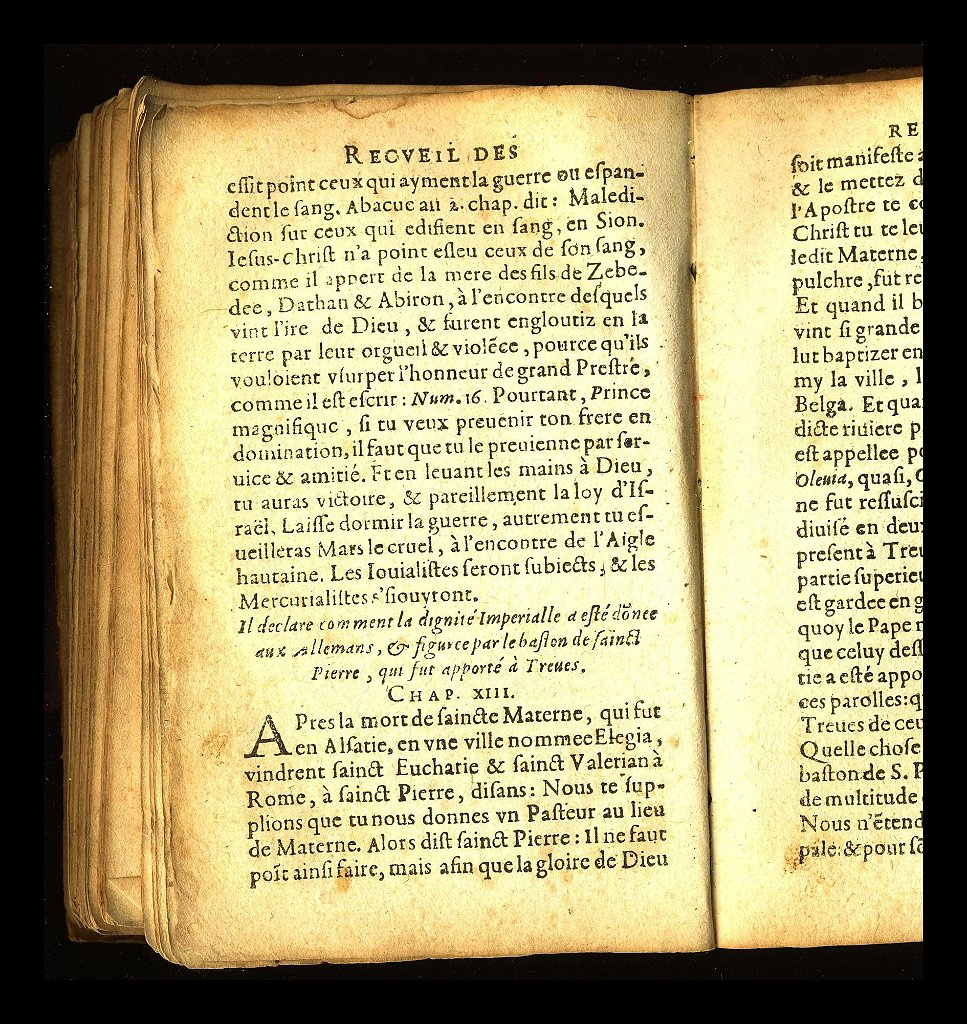 RECVEIL DES
eſlit point ceux qui ayment la guerre ou eſpan-
dent le ſang. Abacuc au 2. chap. dit: Maledi-
ction ſur ceux qui edifient en ſang, en Sion.
Ieſus-Chriſt n'a point eſleu ceux de ſon ſang,
comme il appert de la mere des fils de Zebe-
dee, Dathan & Abiron, à l'encontre deſquels
vint l'ire de Dieu, & furent engloutiz en la
terre par leur orgueil & violẽce, pource qu'ils
vouloient vſurper l'honneur de grand Preſtre,
comme il eſt eſcrit: Num. 16. Pourtant, Prince
magnifique, ſi tu veux preuenir ton frere en
domination, il faut que tu le preuienne par ſer-
uice & amitié. Et en leuant les mains à Dieu,
tu auras victoire, & pareillement la loy d'Iſ-
raël. Laiſſe dormir la guerre, autrement tu eſ-
ueilleras Mars le cruel, à l'encontre de l'Aigle
hautaine. Les Iouialiſtes ſeront ſubiects, & les
Mercurialiſtes s'ſiouyront.
Il declare comment la dignité Imperialle a eſté dõnee
aux Allemans, & figuree par le baſton de ſainct
Pierre, qui fut apporté à Treues.
CHAP. XIII.
APres la mort de ſaincte Materne, qui fut
en Alſatie, en vne ville nommee Elegia,
vindrent ſainct Eucharie & ſainct Valerian à
Rome, à ſainct Pierre, diſans: Nous te ſup-
plions que tu nous donnes vn Paſteur au lieu
de Materne. Alors diſt ſainct Pierre: Il ne faut
poĩt ainſi faire, mais afin que la gloire de Dieu
RE
ſoit manifeſte
& le mettez
l'Apoſtre te
Chriſt tu te
ledit Materne,
pulchre, fut
Et quand il
vint ſi grande
lut baptizer en
my la ville,
Belga. Et
dicte riuiere
eſt appellee
Olenia, quaſi,
ne fut
diuiſé en
preſent à
partie
eſt gardee en
quoy le Pape
que celuy
tie a eſté
ces parolles:
Treues de
Quelle choſe
baſton de S.
de multitude
Nous
pale: & pour